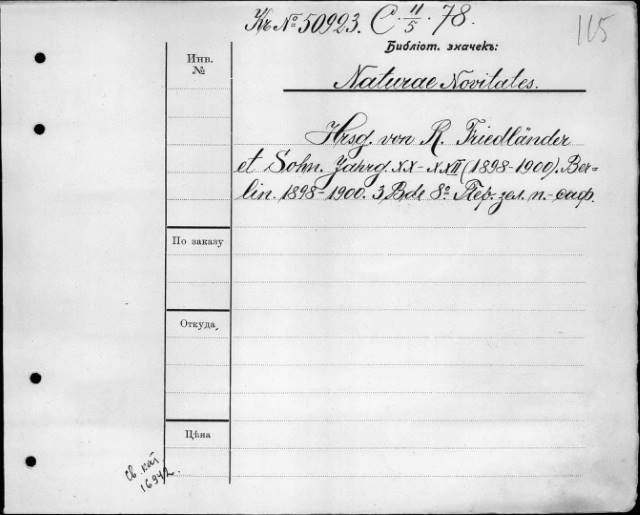 Къ № 50923. C. 11/5. 78.
115
Библіот. значекъ:
Инв. №
Naturae Novitates.
Hrsg. von R. Friedländer
et Sohn. Jahrg. XX-XXII (1898-1900). Ber-
lin. 1898-1900. 3 Bde 8º. Пер. зел. п.-саф.
По заказу
Откуда,
Цѣна
Св. кат
16942.